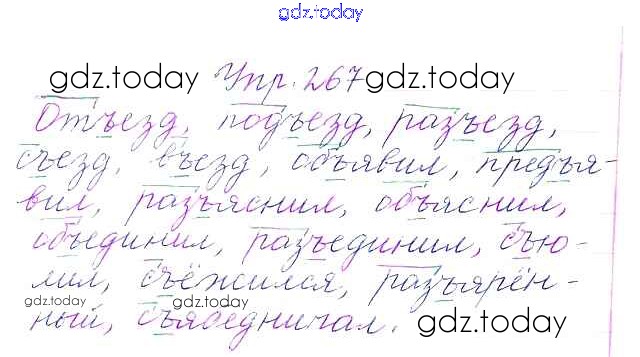 gdz.today
gdz.today Упр. 267 gdz.today
Отъезд, подъезд, разъезд,
съезд, въезд, объявил, предъя-
вил, разъяснил, объяснил,
объединил, разъединил, съю-
лил, съёжился, разъярён-
gdz.today gdz.today
ный, съябедничал. gdz.today